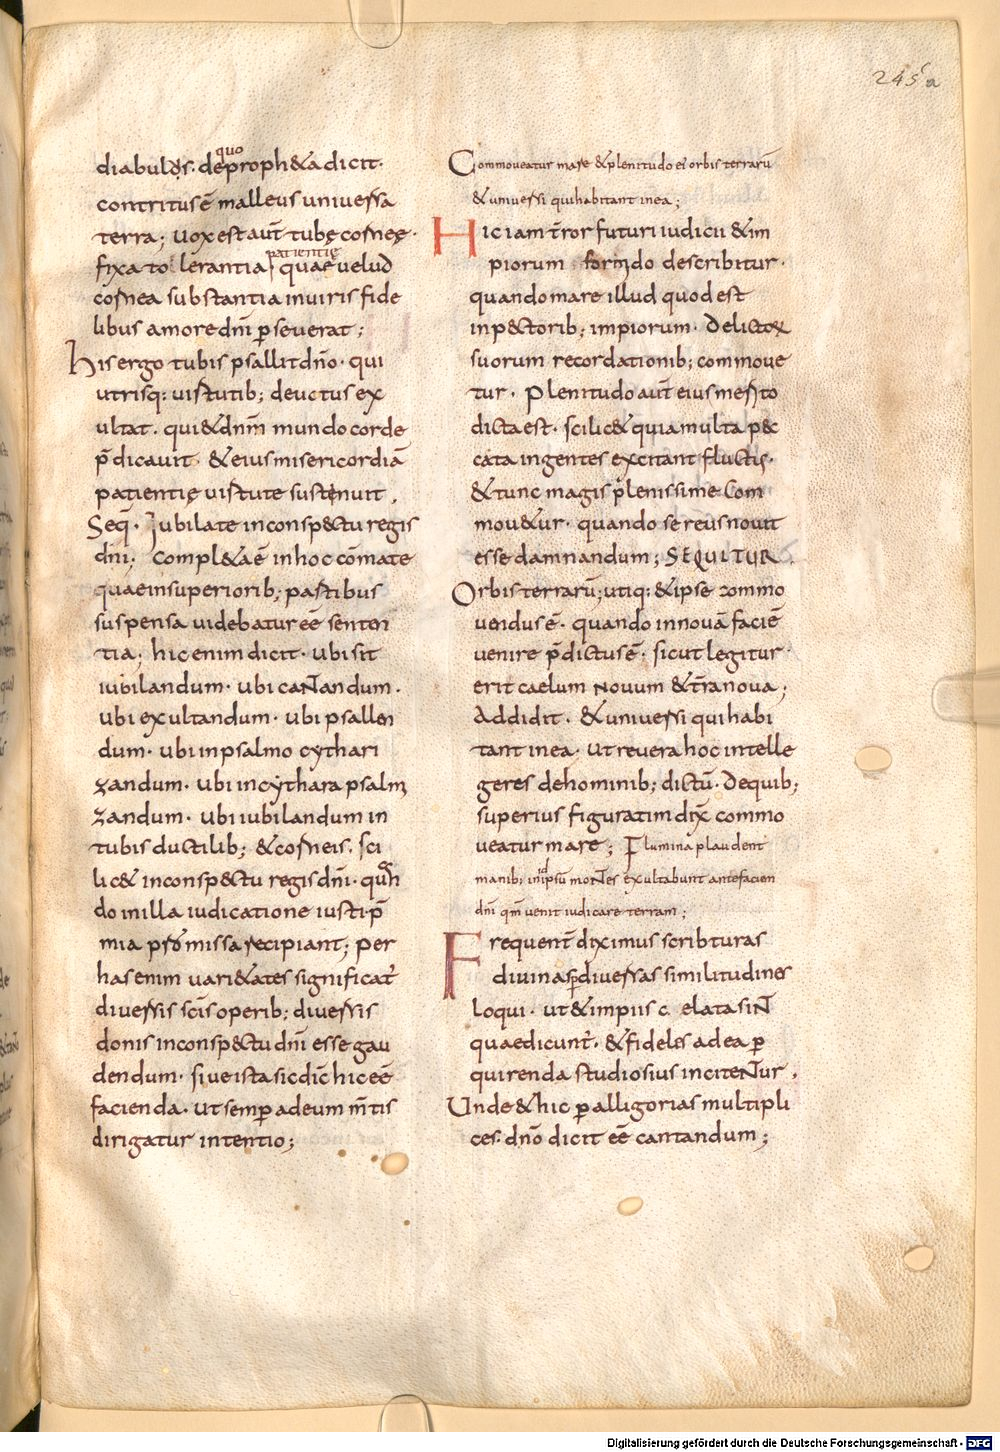 245a
diabulus. de quo proph&a dicit.
contritus ẽ malleus uniuersa
terra; uox est aut̃ tubę corneę.
fixa tolerantia patientię quae uelud
cornea substantia inuiris fide
libus amore dñi p̱seuerat;
His ergo tubis psallit dño. qui
utrisq: uirtutib; deuctus ex
ultat. qui & dnm̃ mundo corde
p̃dicauit. & eius misericordiã
patientię uirtute sustenuit.
Seq̃. Iubilate inconsp&tu regis
dñi. compl&a ẽ inhoc cõmate
quae insuperiorib; partibus
suspensa uidebatur eẽ senten
tia; hic enim dicit. ubi sit
iubilandum. ubi caNandum.
ubi exultandum. ubi psallen
dum. ubi inpsalmo cythari
zandum. ubi incythara psalmi
zandum. ubi iubilandum in
tubis ductilib; & corneis. sci
lic& inconsp&tu regis dñi. quan
do inilla iudicatione iusti p̃
mia promissa recipiant; per
has enim uari&ates significat̃
diuersis scĩs operib; diuersis
donis inconsp&tu dñi esse gau
dendum. siue ista sic dic̃ hic eẽ
facienda. ut semp̱ adeum m̃tis
dirigatur intentio;
Commoueatur mare & plenitudo ei orbis terrarũ
& uniuersi qui habitant inea;
Hic iam t̃ror futuri iudicii & im
piorum formido describitur.
quando mare illud quod est
inp&torib; impiorum. delictorum
suorum recordationib; commoue
tur. Plenitudo aut̃ eius merito
dicta est. scilic& quia multa pec
cata ingentes excitant fluctus.
& tunc magis plenissime com
mou&ur. quando se reus nouit
esse damnandum; SEQUITUR.
Orbis terrarũ; utiq: & ipse commo
uendus ẽ. quando innouã faciẽ
uenire p̃dictus ẽ. sicut legitur.
erit caelum nouum & t̃ra noua;
Addidit. & uniuersi qui habi
tant inea. ut reuera hoc intelle
geres dehominib; dictũ. dequib;
superius figuratim dix̃ commo
ueatur mare; Flumina plaudent
manib; in id ipsũ moNes exultabunt antefaciem
dñi qm̃ uenit iudicare terram;
Frequent̃ diximus scribturas
diuinas p̱ diuersas similitudines
loqui. ut & impiis c elata siN
quae dicunt̃. & fideles adea p̱
quirenda studiosius inciteNur.
Unde & hic p̱ alligorias multipli
ces. dño dicit eẽ cantandum;
Digitalisierung gefördert durch die Deutsche Forschungsgemeinschaft - DFG